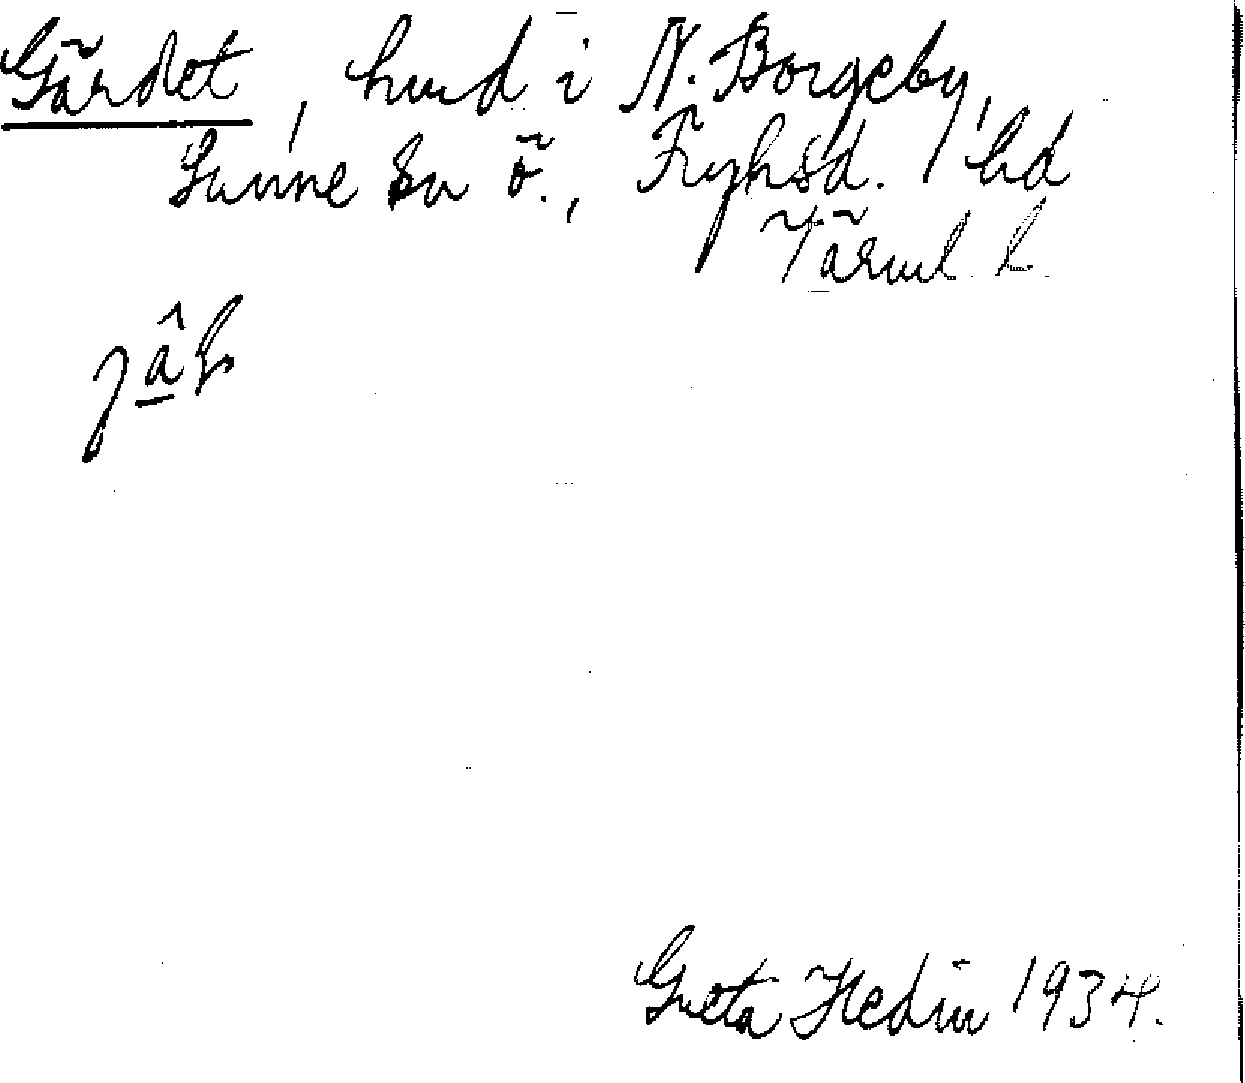 Gärdet, hmd i N. Borgeby,
Sunne sn ö., Fryksd. hd
Värml. l.
Greta Hedin 1934.